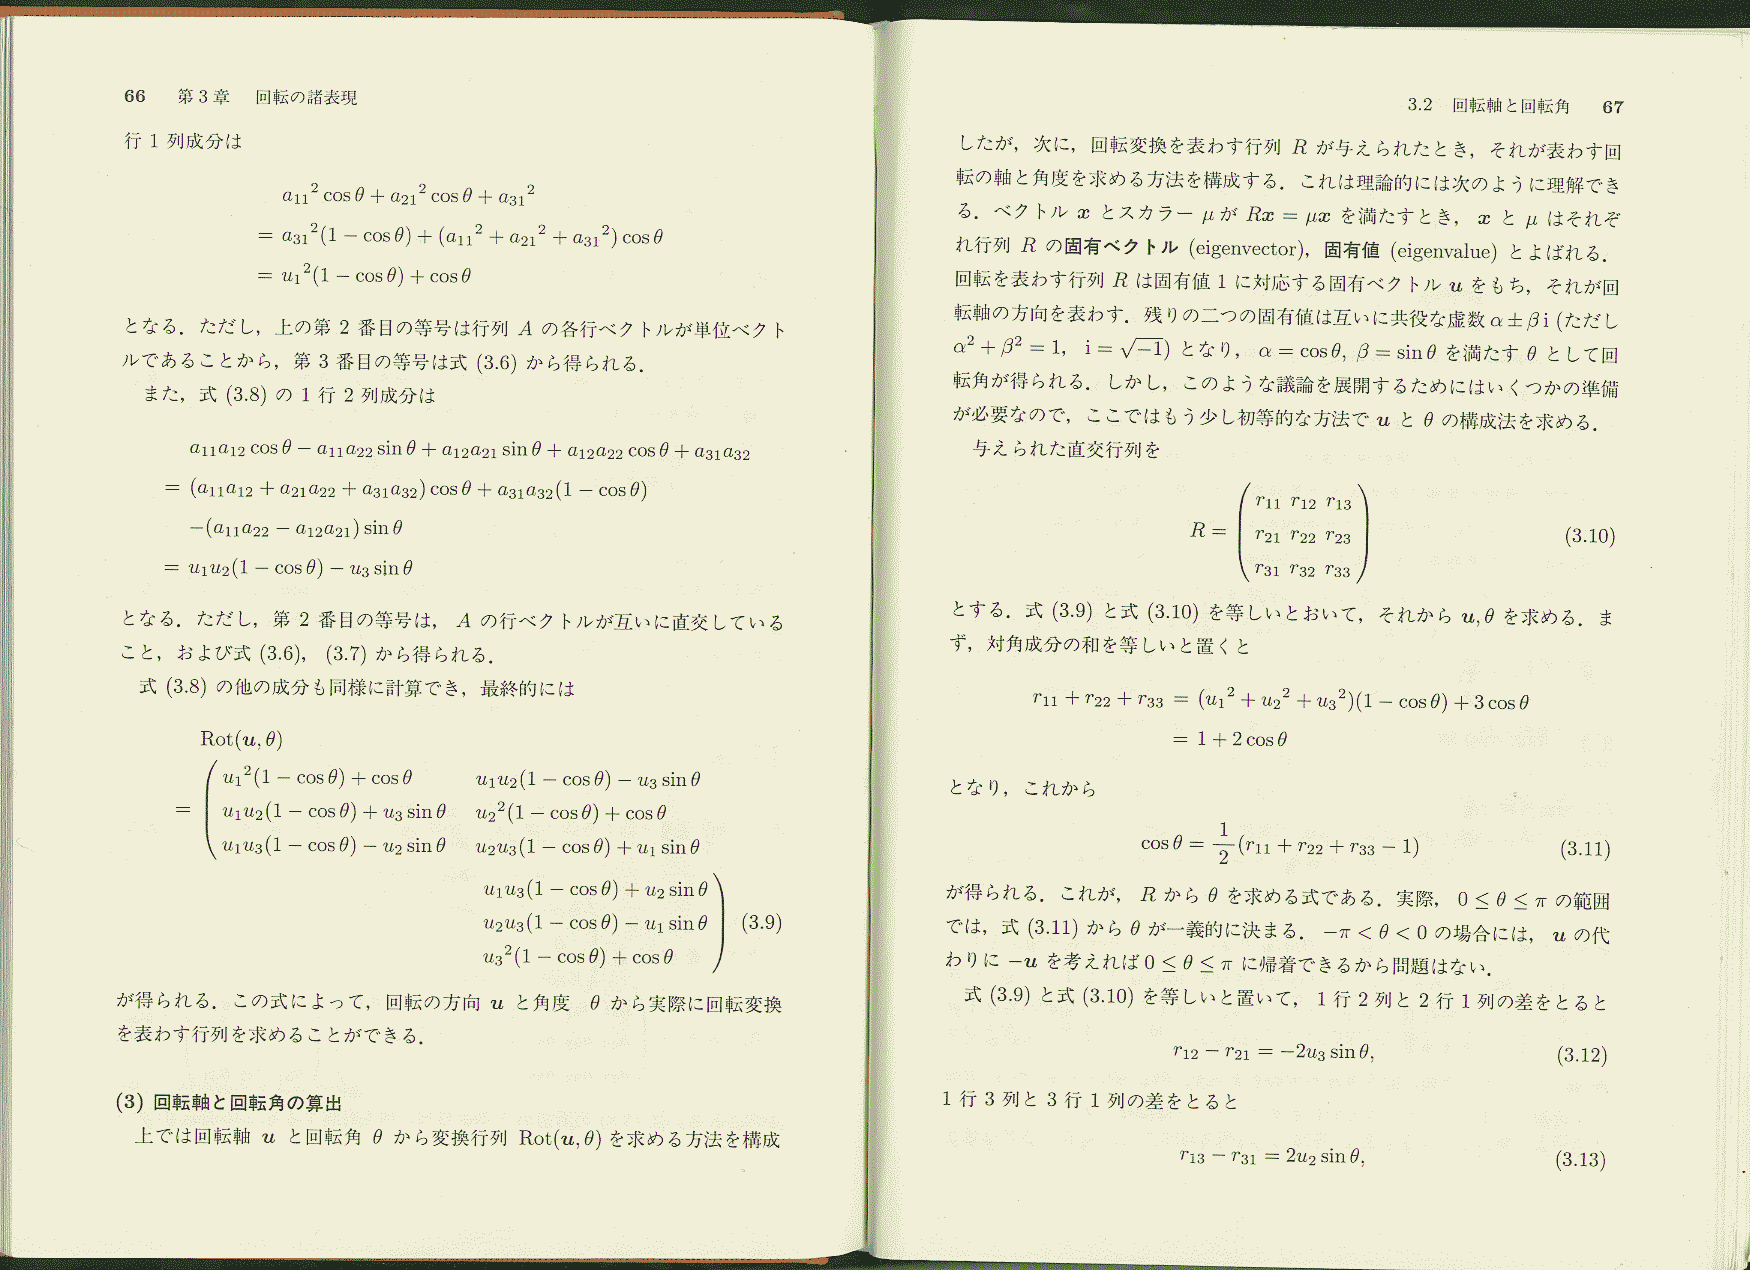 66 第3章 回転の諸表現
行 1 列成分は
a₁₁² cos θ + a₂₁² cos θ + a₃₁²
= a₃₁²(1 − cos θ) + (a₁₁² + a₂₁² + a₃₁²) cos θ
= u₁²(1 − cos θ) + cos θ
となる．ただし，上の第 2 番目の等号は行列 A の各行ベクトルが単位ベクト
ルであることから，第 3 番目の等号は式 (3.6) から得られる．
また，式 (3.8) の 1 行 2 列成分は
a₁₁a₁₂ cos θ − a₁₁a₂₂ sin θ + a₁₂a₂₁ sin θ + a₁₂a₂₂ cos θ + a₃₁a₃₂
= (a₁₁a₁₂ + a₂₁a₂₂ + a₃₁a₃₂) cos θ + a₃₁a₃₂(1 − cos θ)
−(a₁₁a₂₂ − a₁₂a₂₁) sin θ
= u₁u₂(1 − cos θ) − u₃ sin θ
となる．ただし，第 2 番目の等号は，A の行ベクトルが互いに直交している
こと，および式 (3.6)，(3.7) から得られる．
式 (3.8) の他の成分も同様に計算でき，最終的には
Rot(u, θ)
u₁²(1 − cos θ) + cos θ u₁u₂(1 − cos θ) − u₃ sin θ
= u₁u₂(1 − cos θ) + u₃ sin θ u₂²(1 − cos θ) + cos θ
u₁u₃(1 − cos θ) − u₂ sin θ u₂u₃(1 − cos θ) + u₁ sin θ
u₁u₃(1 − cos θ) + u₂ sin θ
u₂u₃(1 − cos θ) − u₁ sin θ (3.9)
u₃²(1 − cos θ) + cos θ
が得られる．この式によって，回転の方向 u と角度 θ から実際に回転変換
を表わす行列を求めることができる．
(3) 回転軸と回転角の算出
上では回転軸 u と回転角 θ から変換行列 Rot(u, θ) を求める方法を構成
3.2 回転軸と回転角 67
したが，次に，回転変換を表わす行列 R が与えられたとき，それが表わす回
転の軸と角度を求める方法を構成する．これは理論的には次のように理解でき
る．ベクトル x とスカラー μ が Rx = μx を満たすとき，x と μ はそれぞ
れ行列 R の固有ベクトル (eigenvector)，固有値 (eigenvalue) とよばれる．
回転を表わす行列 R は固有値 1 に対応する固有ベクトル u をもち，それが回
転軸の方向を表わす．残りの二つの固有値は互いに共役な虚数 α ± βi (ただし
α² + β² = 1, i = √−1) となり，α = cos θ, β = sin θ を満たす θ として回
転角が得られる．しかし，このような議論を展開するためにはいくつかの準備
が必要なので，ここではもう少し初等的な方法で u と θ の構成法を求める．
与えられた直交行列を
r₁₁ r₁₂ r₁₃
R = r₂₁ r₂₂ r₂₃ (3.10)
r₃₁ r₃₂ r₃₃
とする．式 (3.9) と式 (3.10) を等しいとおいて，それから u, θ を求める．ま
ず，対角成分の和を等しいと置くと
r₁₁ + r₂₂ + r₃₃ = (u₁² + u₂² + u₃²)(1 − cos θ) + 3 cos θ
= 1 + 2 cos θ
となり，これから
cos θ = 1/2 (r₁₁ + r₂₂ + r₃₃ − 1) (3.11)
が得られる．これが，R から θ を求める式である．実際，0 ≤ θ ≤ π の範囲
では，式 (3.11) から θ が一義的に決まる．−π < θ < 0 の場合には，u の代
わりに −u を考えれば 0 ≤ θ ≤ π に帰着できるから問題はない．
式 (3.9) と式 (3.10) を等しいと置いて，1 行 2 列と 2 行 1 列の差をとると
r₁₂ − r₂₁ = −2u₃ sin θ, (3.12)
1 行 3 列と 3 行 1 列の差をとると
r₁₃ − r₃₁ = 2u₂ sin θ, (3.13)